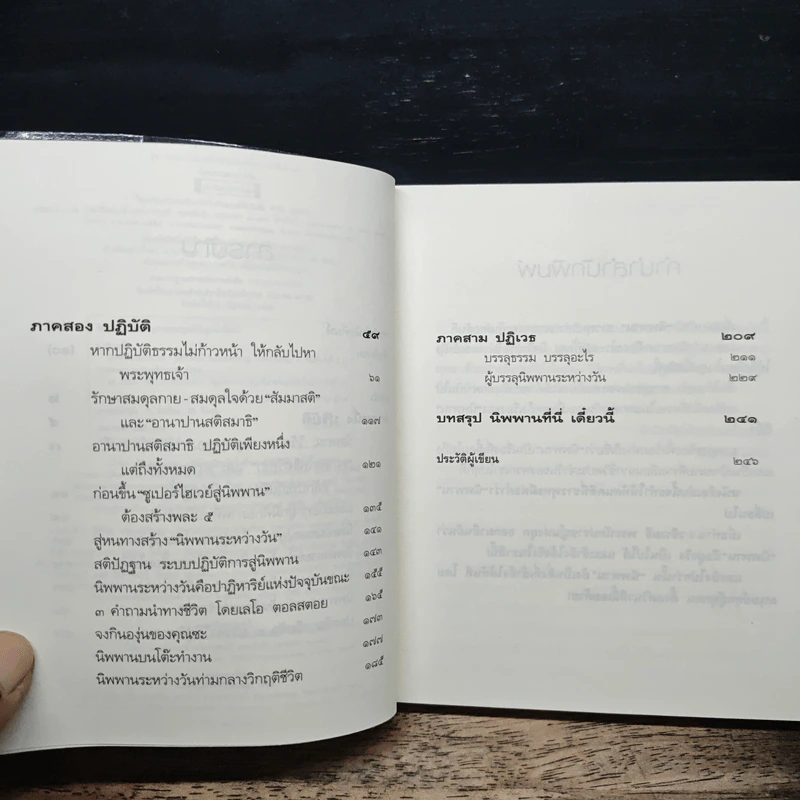 ภาคสอง ปฏิบัติ ๕๙
หากปฏิบัติธรรมไม่ก้าวหน้า ให้กลับไปหา
พระพุทธเจ้า ๖๑
รักษาสมดุลกาย-สมดุลใจด้วย“สัมมาสติ”
และ“อานาปานสติสมาธิ” ๑๑๗
อานาปานสติสมาธิ ปฏิบัติเพียงหนึ่ง
แต่ถึงทั้งหมด ๑๒๑
ก่อนขึ้น“ซูเปอร์ไฮเวย์สู่นิพพาน”
ต้องสร้างพละ ๕ ๑๓๕
สู่หนทางสร้าง“นิพพานระหว่างวัน” ๑๔๑
สติปัฏฐาน ระบบปฏิบัติการสู่นิพพาน ๑๔๓
นิพพานระหว่างวันคือปาฏิหาริย์แห่งปัจจุบันขณะ ๑๕๕
๓ คำถามนำทางชีวิต โดยเลโอ ตอลสตอย ๑๖๕
จงกินองุ่นของคุณซะ ๑๗๓
นิพพานบนโต๊ะทำงาน ๑๗๗
นิพพานระหว่างวันท่ามกลางวิกฤติชีวิต ๑๘๕
ภาคสาม ปฏิเวธ ๒๐๙
บรรลุธรรม บรรลุอะไร ๒๑๑
ผู้บรรลุนิพพานระหว่างวัน ๒๒๙
บทสรุป นิพพานที่นี่ เดี๋ยวนี้ ๒๔๑
ประวัติผู้เขียน ๒๔๖